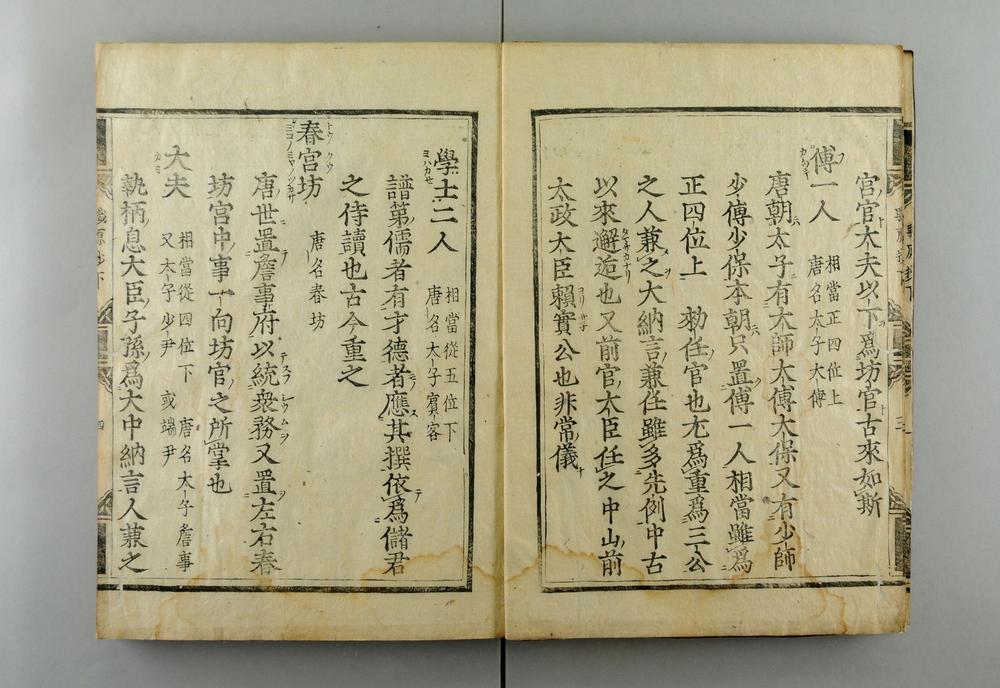 宮官大夫以下爲坊官古來如斯
傅一人 相當正四位上 唐名太子大傅
唐朝太子有太師太傅太保又有少師
少傅少保本朝只置傅一人相當雖爲
正四位上 勅任官也尤爲重爲三公
之人兼之大納言兼任雖多先例中古
以來邂逅也又前官大臣任之中山前
太政大臣賴實公也非常儀
學士二人 相當從五位下 唐名太子賓客
譜第儒者有才德者應其撰依爲儲君
之侍讀也古今重之
春宮坊 唐名春坊
唐世置詹事府以統衆務又置左右春
坊宮中事一向坊官之所掌也
大夫 相當從四位下 唐名太子詹事 又太子少尹 或端尹
執柄息大臣子孫爲大中納言人兼之